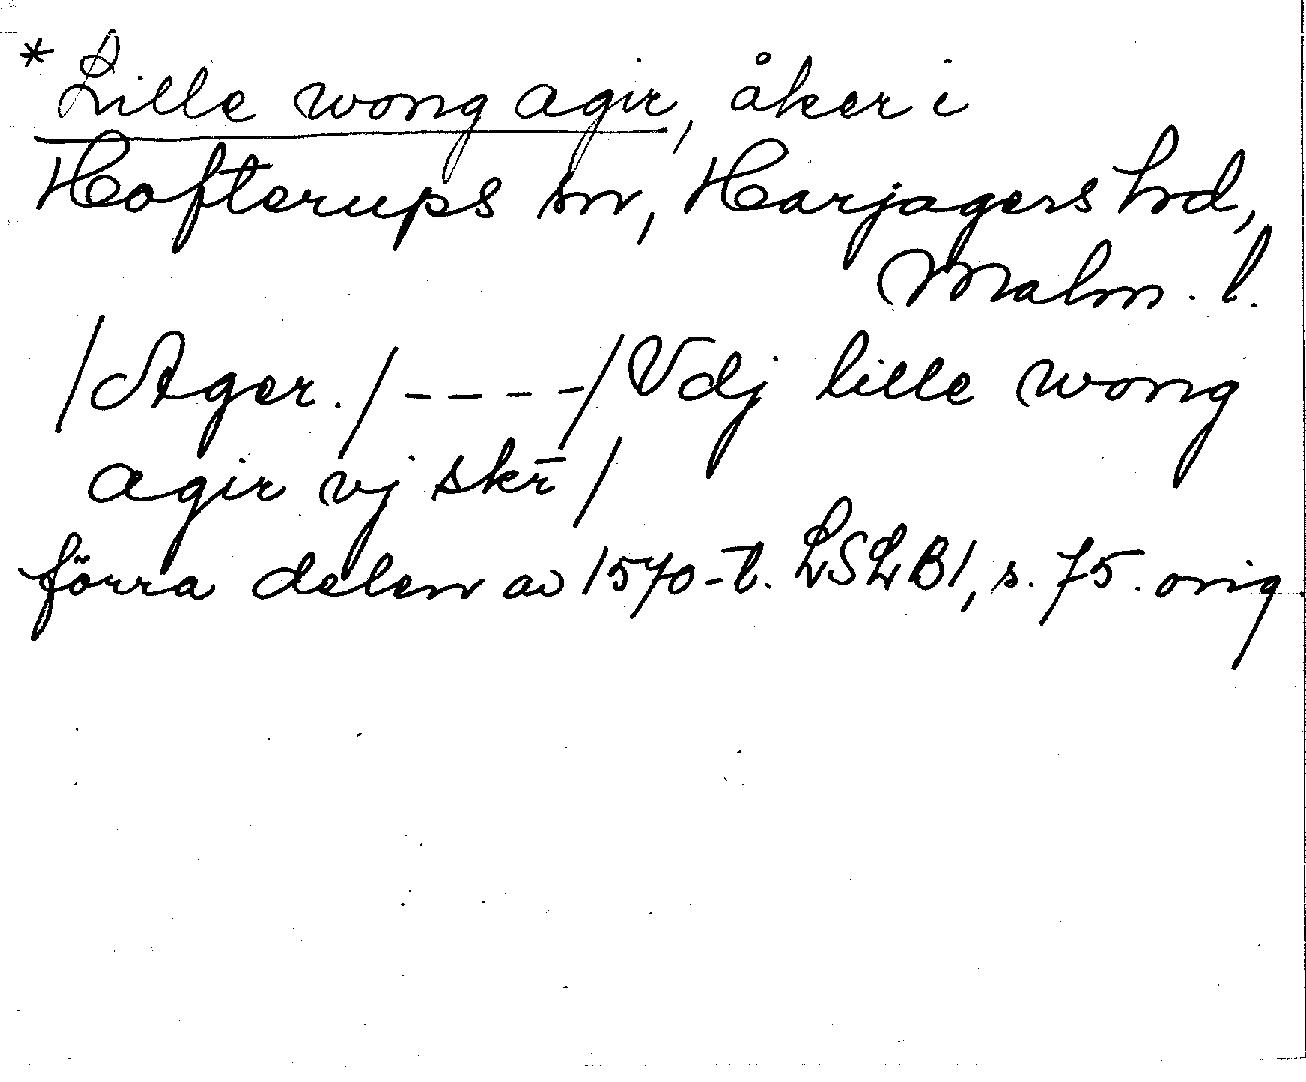 * Lille wong agir, åker i
Hofterups sn, Harjagers hd,
Malm. l.
/Ager./----/Vdj lille wong
agir vj skr̄/
förra delen av 1570-t. LSLB1, s. 75. orig